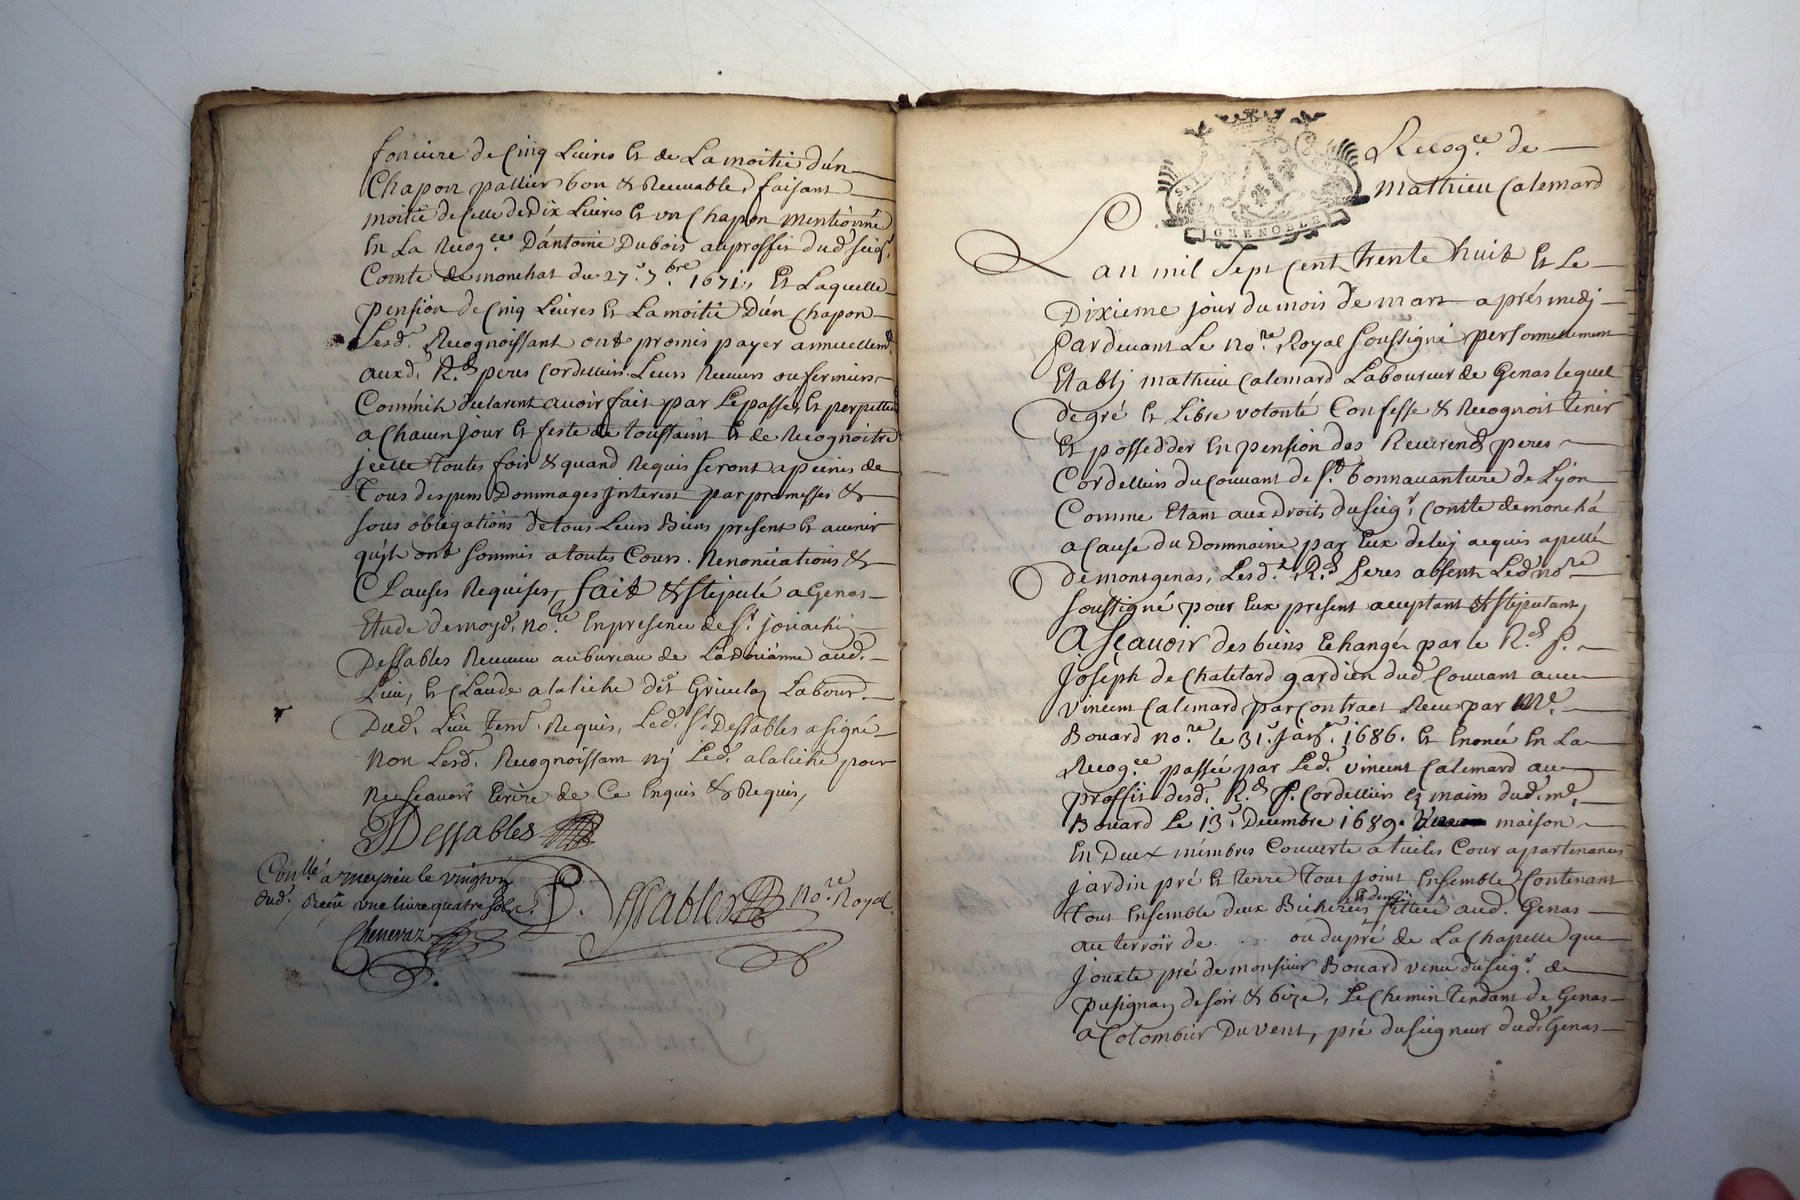 fonciere de Cinq Livres Et de La moitié d'un
Chapon paillier bon & Recevable, faisant
moitié de Celle de Dix Livres Et un Chapon mentionné
En La Recog.ce D'antoine Dubois au proffit dud. seig.r
Comte de monchat du 27.e 7.bre 1671, Et Laquelle
pension de Cinq Livres Et La moitié D'un Chapon
Lesd. Recognoissant ont promis payer annuellem.t
auxd. R.ds peres Cordeliers Leurs Receveurs ou fermiers
Comm'ils declarent avoir fait par Le passé, Et perpetuel
a Chacun jour Et feste de toussaint Et de Recognoitre
jcelle toutes fois & quand Requis seront a peines de
tous despens Dommages jnterest par promesses &
sous obligations de tous Leurs Biens present Et avenir
qu'jls ont soummis a toutes Cours. Renonciations &
Clauses Requises, fait & stipulé a Genas
Etude de moyd. no.re En presence de S.r joiachim
Dessables Receveur au bureau de La doüanne aud.
Lieu, Et Claude alaliche dit Grivelay Labour.
Dud. Lieu tem.t Requis, Led. S.r Dessables a signé
Non Lesd. Recognoissant nj Led. alaliche pour
Ne sçavoir Ecrire de Ce Enquis & Requis,
JDessables
Con.llé a meysieu le vingt
dud. Receu une livre quatre sols
Dessables no.re Royal.
Chenevaz
Recog.ce de
mathieu Calemard
GRENOBLE
Lan mil sept Cent trente huit Et Le
Dixieme jour du mois de mars après medj
Pardevant Le no.re Royal soussigné personnellement
Etablj mathieu Calemard Laboureur de Genas lequel
de gré Et Libre volonté Confesse & Recognoit tenir
Et possedder En pension des Reverends peres
Cordeliers du Couvant de S.t bonnavanture de Lyon
Comme Etant aux Droits du seig.r Comte de monchá
a Cause du Dommaine par Eux de luj acquis apellé
de montgenas, Lesd.t R.ds Peres absent Led. no.re
soussigné pour Eux present aceptant & stipulant,
A Sçavoir des biens Echangés par le R.d P.
Joseph de Chatelard gardien dud. Couvant avec
Vincent Calemard par Contract Receu par M.e
Bouard no.re le 31.e janv. 1686. Et Enoncé En La
Recog.ce passée par Led. vincent Calemard au
proffit desd. R.d P. Cordeliers Es mains dud. m.e
Bouard Le 13.e Decembre 1689. maison
En Deux membres Couverte a tuiles Cour apartenances
jardin pré Et terre Tout joint Ensemble Contenant
Tout Ensemble deux Bicherées sittuée aud. Genas
au terroir de . . . ou du pré de La Chapelle que
jouxte pré de monsieur Bouard venu du seig.r de
pusignay de soir & bize, Le Chemin tendant de Genas
a Colombier Du vent, pré du seigneur dud. Genas